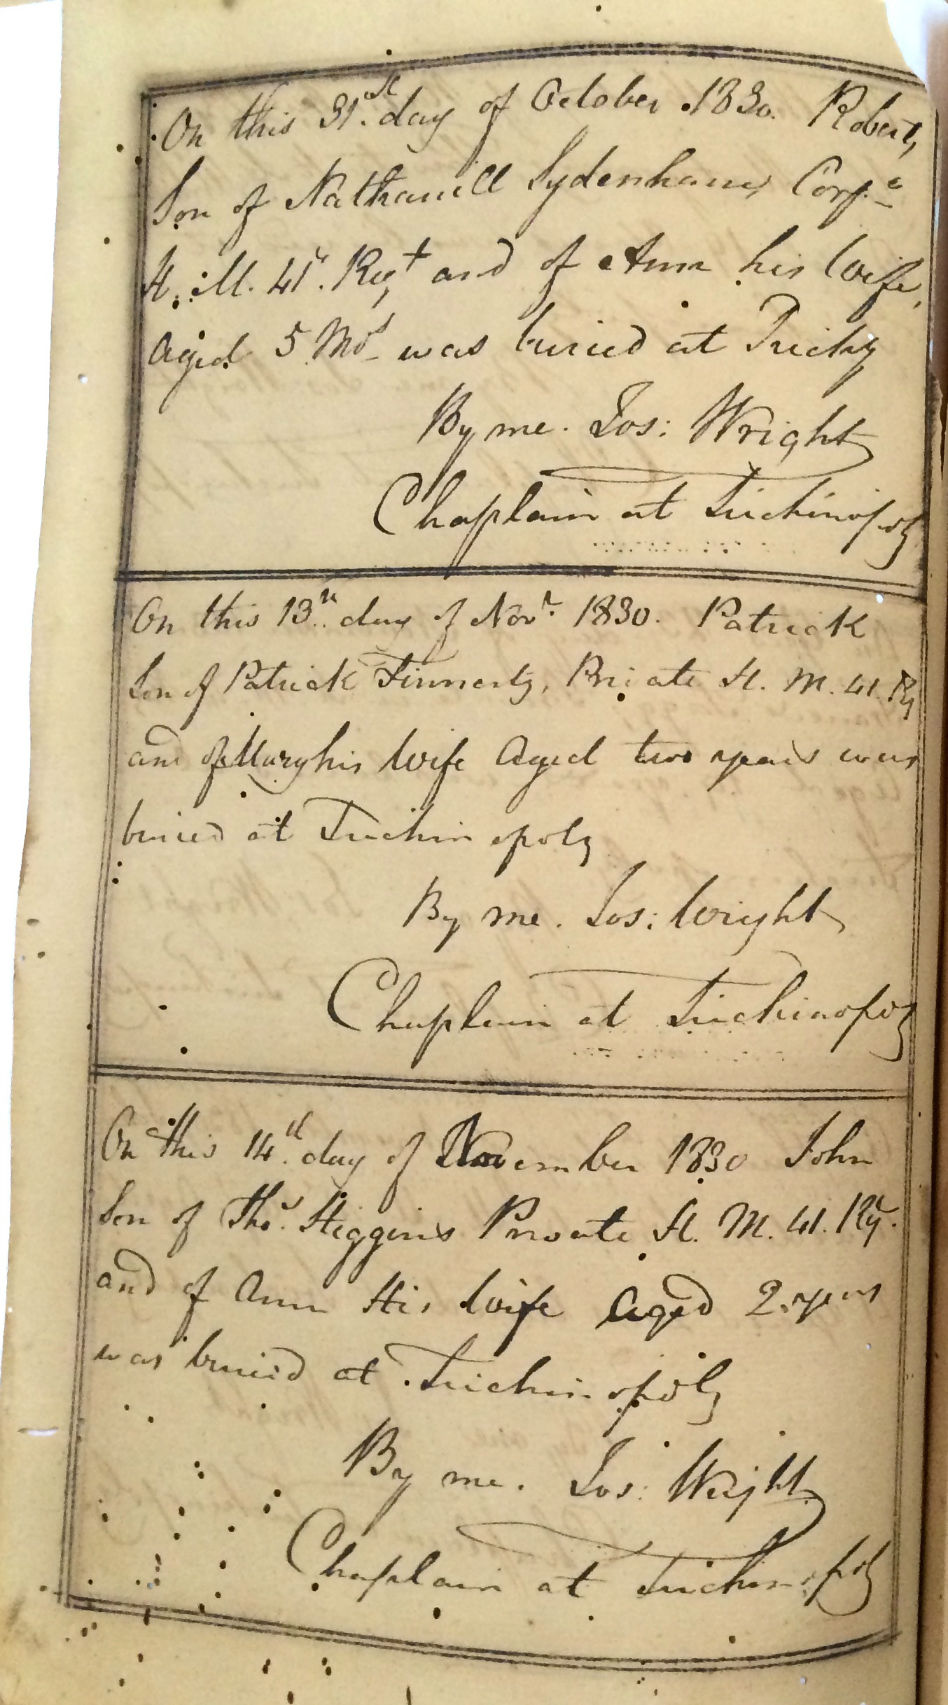 On this 31st. day of October 1830. Robert,
Son of Nathaniell Sydenham, Corp.l
H. M. 41st. Regt and of Ann his Wife,
Aged 5 Mos was buried at Trichy
By me. Jos: Wright
Chaplain at Trichinopoly
On this 13th. day of Novr. 1830. Patrick
Son of Patrick Finnerty, Private H. M. 41. Rg
and of Mary his Wife Aged two years was
buried at Trichinopoly
By me. Jos: Wright
Chaplain at Trichinopoly
On this 14th. day of November 1830 John
Son of Thos. Higgins Private H. M. 41. Rgt.
and of Ann His Wife Aged 2 years
was buried at Trichinopoly
By me. Jos: Wright
Chaplain at Trichinopoly